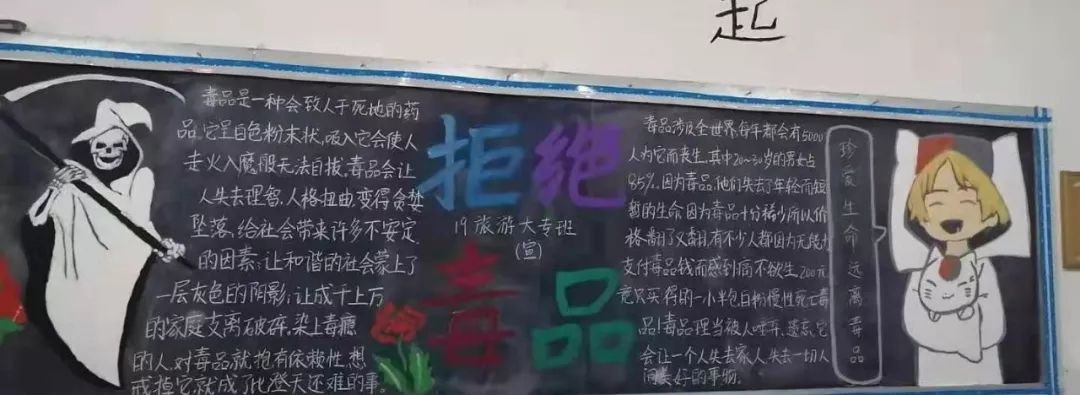 起
毒品是一种会致人于死地的药
品,它呈白色粉末状,吸入它会使人
走火入魔般无法自拔,毒品会让
人失去理智,人格扭曲,变得贪婪
坠落,给社会带来许多不安定
的因素;让和谐的社会蒙上了
一层灰色的阴影;让成千上万
的家庭支离破碎,染上毒瘾
的人,对毒品就抱有依赖性,想
戒掉它就成了比登天还难的事。
拒绝
19旅游大专班
(宣)
毒品
毒品涉及全世界,每年都会有5000
人为它而丧生,其中20~30岁的男女占
85%,因为毒品,他们失去了年轻而短
暂的生命因为毒品十分稀少所以价
格翻了又翻,有不少人都因为无能力
支付毒品钱而感到痛不欲生,200元
竟只买得的一小半包白粉慢性死亡毒
品!毒品理当被人唾弃、遗忘,它
会让一个人失去家人,失去一切人
间美好的事物。
珍爱生命远离毒品